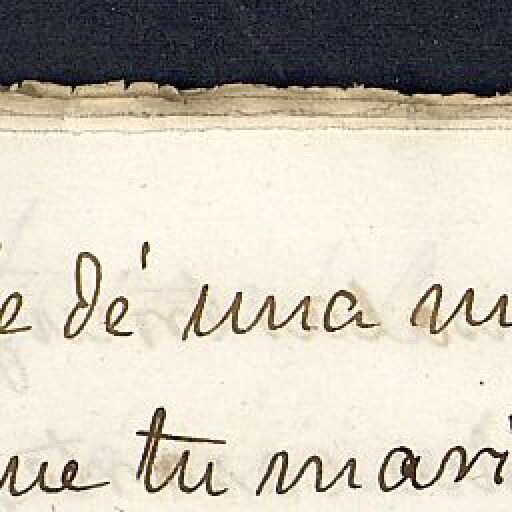 e dé una m
ue tu mari